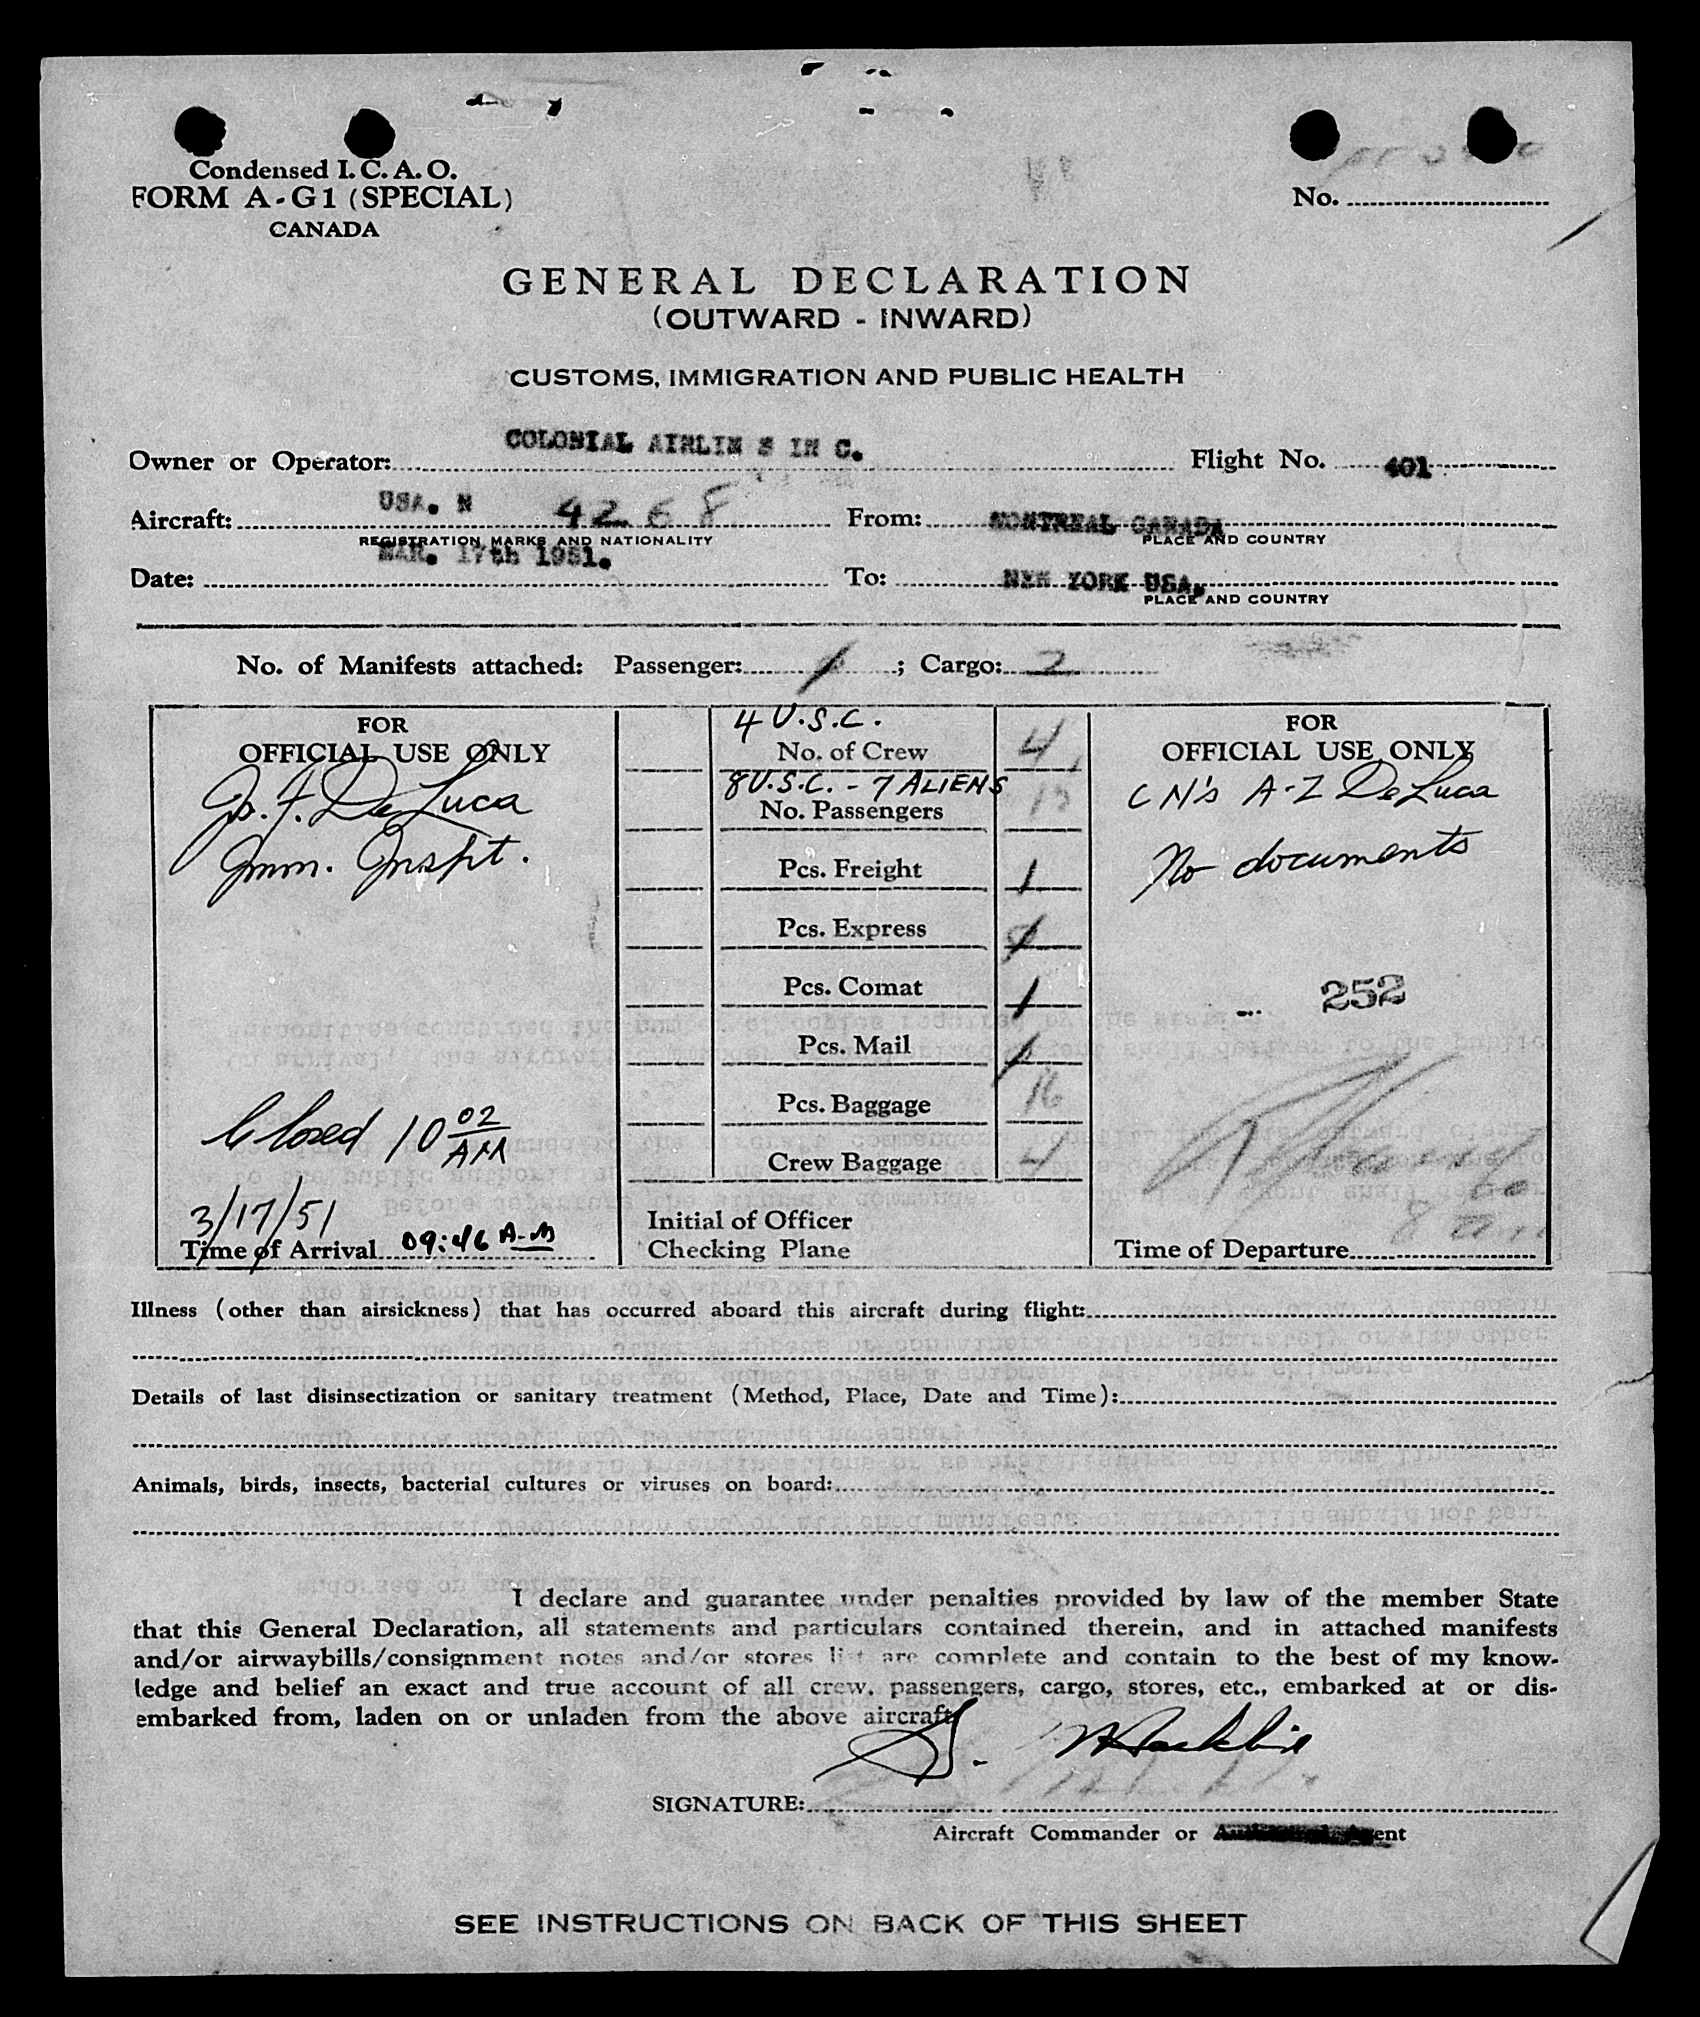 Condensed I. C. A. O.
FORM A-G1 (SPECIAL)
CANADA
No.
GENERAL DECLARATION
(OUTWARD - INWARD)
CUSTOMS, IMMIGRATION AND PUBLIC HEALTH
Owner or Operator: COLONIAL AIRLIN S IN C. Flight No. 401
Aircraft: USA. N 4268 From: MONTREAL CANADA
REGISTRATION MARKS AND NATIONALITY PLACE AND COUNTRY
Date: MAR. 17th 1951. To: NEW YORK USA.
PLACE AND COUNTRY
No. of Manifests attached: Passenger: 1 ; Cargo: 2
FOR
OFFICIAL USE ONLY
Jo. F. DeLuca
Imm. Inspt.
Closed 10 02 AM
3/17/51
Time of Arrival 09:46 A-M
4 U.S.C.
No. of Crew 4
8 U.S.C. - 7 ALIENS
No. Passengers 15
Pcs. Freight 1
Pcs. Express
Pcs. Comat 1
Pcs. Mail 1
Pcs. Baggage 16
Crew Baggage 4
Initial of Officer
Checking Plane
FOR
OFFICIAL USE ONLY
CN's A-Z DeLuca
No documents
252
Time of Departure
Illness (other than airsickness) that has occurred aboard this aircraft during flight:
Details of last disinsectization or sanitary treatment (Method, Place, Date and Time):
Animals, birds, insects, bacterial cultures or viruses on board:
I declare and guarantee under penalties provided by law of the member State
that this General Declaration, all statements and particulars contained therein, and in attached manifests
and/or airwaybills/consignment notes and/or stores list are complete and contain to the best of my know-
ledge and belief an exact and true account of all crew, passengers, cargo, stores, etc., embarked at or dis-
embarked from, laden on or unladen from the above aircraft
SIGNATURE:
Aircraft Commander or
SEE INSTRUCTIONS ON BACK OF THIS SHEET